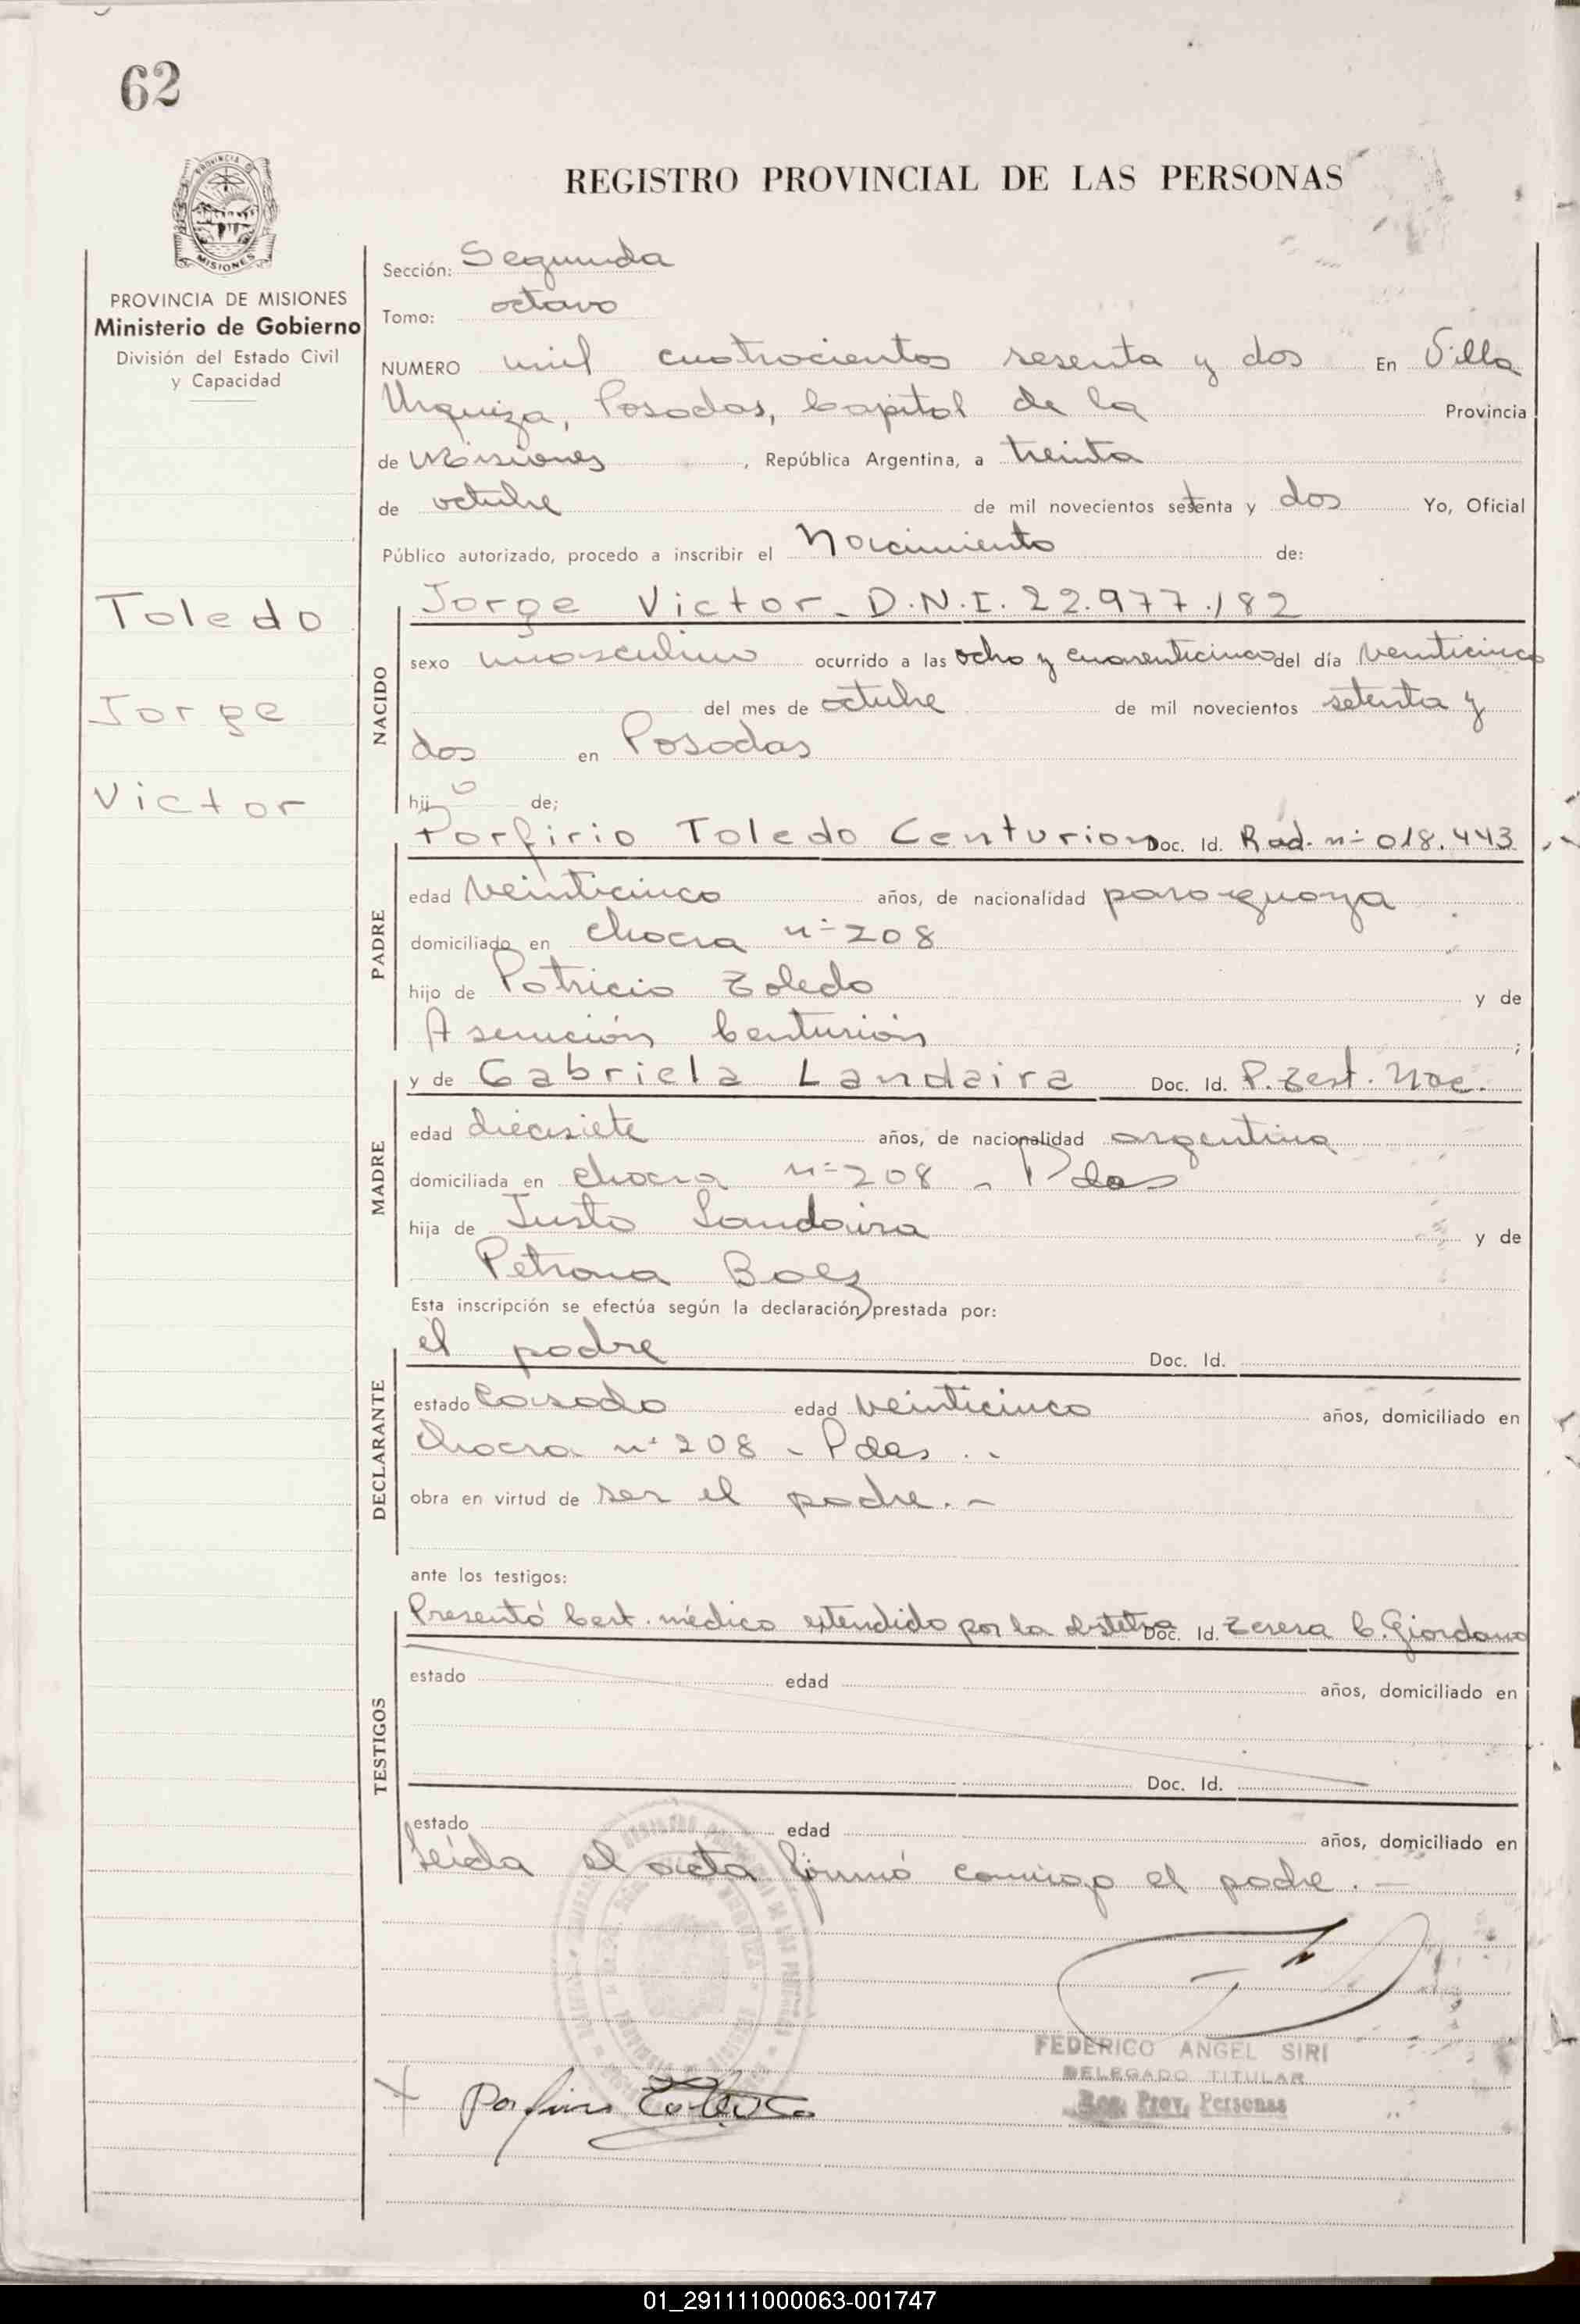 62
REGISTRO PROVINCIAL DE LAS PERSONAS
PROVINCIA DE MISIONES
Ministerio de Gobierno
División del Estado Civil
y Capacidad
Toledo
Jorge
Victor
Sección: Segunda
Tomo: octavo
NUMERO mil cuatrocientos sesenta y dos En Villa
Urquiza, Posadas, Capital de la Provincia
de Misiones, República Argentina, a treinta
de octubre de mil novecientos setenta y dos Yo, Oficial
Público autorizado, procedo a inscribir el Nacimiento de:
NACIDO
Jorge Victor - D.N.I. 22.977.182
sexo masculino ocurrido a las ocho y cuarenticinco del día veinticinco
del mes de octubre de mil novecientos setenta y
dos en Posadas
hijo de;
PADRE
Porfirio Toledo Centurion Doc. Id. Rad. nº 018.443
edad veinticinco años, de nacionalidad paraguaya
domiciliado en chacra nº 208
hijo de Patricio Toledo y de
Asunción Centurión ;
MADRE
y de Gabriela Landaira Doc. Id. P. Test. Nac.
edad diecisiete años, de nacionalidad argentina
domiciliada en chacra nº 208 - Pdas
hija de Justo Landaira y de
Petrona Baez
Esta inscripción se efectúa según la declaración prestada por:
DECLARANTE
el padre Doc. Id.
estado casado edad veinticinco años, domiciliado en
chacra nº 208 - Pdas . -
obra en virtud de ser el padre. -
ante los testigos:
TESTIGOS
Presentó Cert. médico extendido por la obstetra Doc. Id. Teresa C. Giordano
estado edad años, domiciliado en
Doc. Id.
estado edad años, domiciliado en
Leída el acta firmó conmigo el padre. -
FEDERICO ANGEL SIRI
DELEGADO TITULAR
Reg. Prov. Personas
Porfirio Toledo
01_291111000063-001747